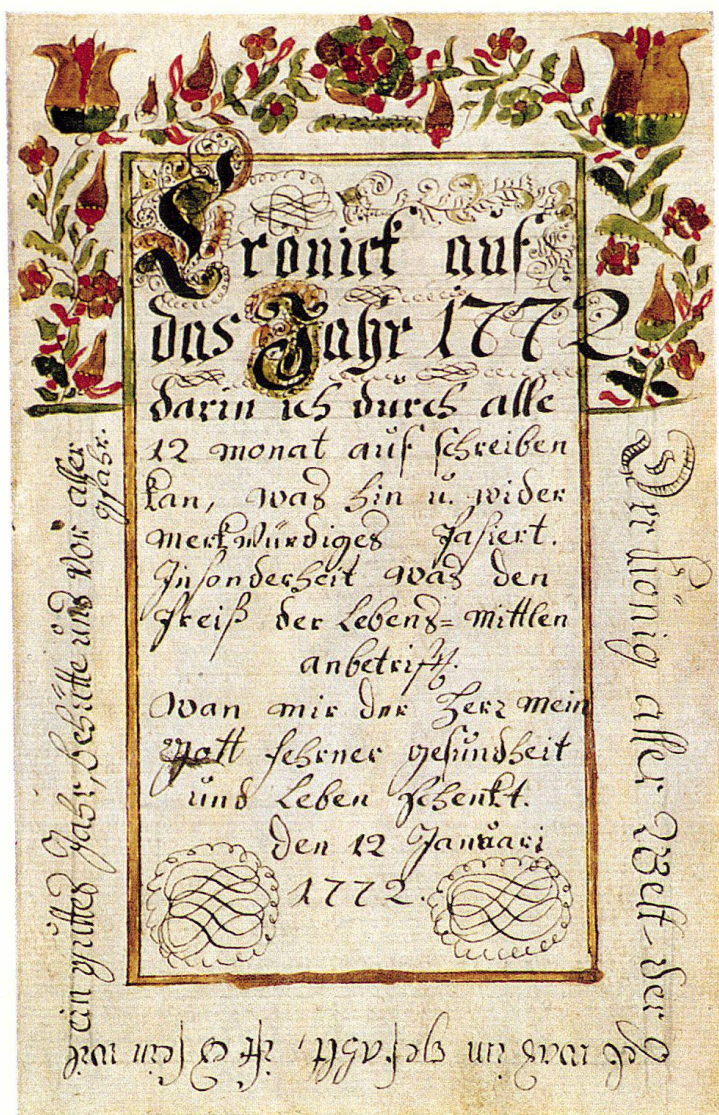 Cronick auf
das Jahr 1772
darin ich durch alle
12 monat auf schreiben
kan, was hin u. wider
merkwürdiges pasiert.
Insonderheit was den
Preiß der Lebens-mittlen
anbetrifft.
wan mir der Herr mein
Gott fehrner gesundheit
und Leben schenkt.
den 12 Januari
1772.
Der König aller Welt der g
geb was im gefahlt, ist es sein wil
ein guttes Jahr, behütte uns vor aller
gfahr.